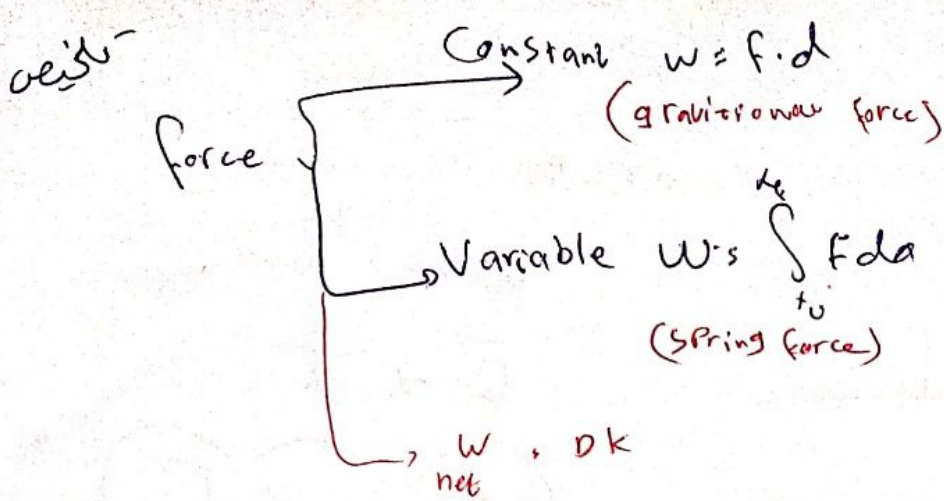 تلخيص
Constant w = f.d
(gravitional force)
force
Variable W = ∫ F dx
(Spring force)
W net = DK